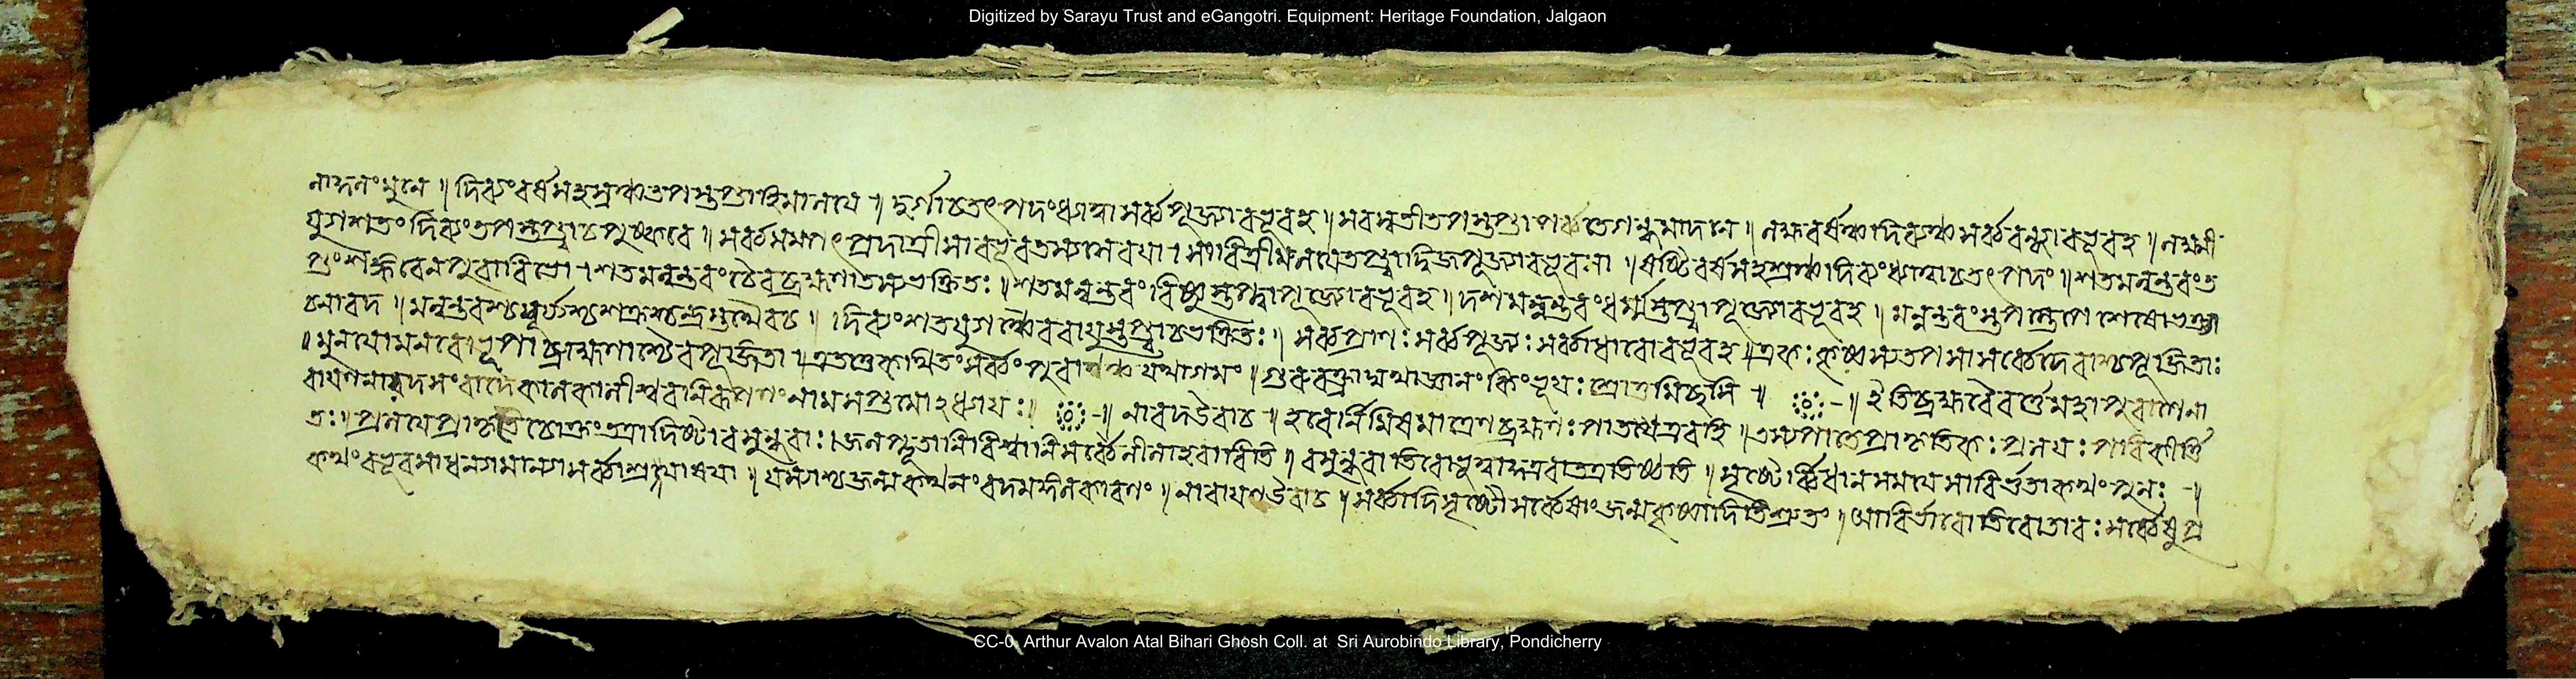 Digitized by Sarayu Trust and eGangotri. Equipment: Heritage Foundation, Jalgaon
মুনে ॥ দিব্যংবর্ষসহস্রঞ্চতপস্তপ্ত্বাহিমালয়ে ॥ দুর্গাচতৎপদংধ্যাত্বাসর্ব্বপূজ্যাবভূবহ ॥ সরস্বতীতপস্তপ্ত্বাপর্ব্বতেগন্ধমাদনে ॥ লক্ষবর্ষঞ্চদিব্যঞ্চসর্ব্ববন্দ্যাবভূবহ ॥ লক্ষ্মী
যুগশতংদিব্যংতপস্তপ্ত্বাচপুষ্করে ॥ সর্ব্বসম্পৎপ্রদাত্রীসাবভূব ॥ সাবিত্রীমলয়েতপ্ত্বাদ্বিজপূজ্যাবভূবসা ॥ ষষ্টিবর্ষসহস্রঞ্চদিব্যংধ্যাত্বাচতৎপদং ॥ শতমন্বন্তরংত
প্তংশঙ্করেণপুরাবিভো । শতমন্বন্তরংচৈবব্রহ্মণাতস্যভক্তিতঃ ॥ শতমন্বন্তরংবিষ্ণুস্তপ্ত্বাপূজ্যোবভূবহ ॥ দশমন্বন্তরংধর্ম্মস্তপ্ত্বাপূজ্যোবভূবহ ॥ মন্বন্তরংস্তপস্তেপেশেষোভক্ত্যা
চনারদ ॥ মন্বন্তরঞ্চসূর্য্যশ্চশক্রশ্চন্দ্রস্তথৈবচ ॥ দিব্যংশতযুগঞ্চৈববায়ুস্তপ্ত্বাচভক্তিতঃ ॥ সর্ব্বপ্রাণঃসর্ব্বপূজ্যঃসর্ব্বাধারোবভূবহ ॥ এবংকৃষ্ণস্যতপসাসর্ব্বেদেবাশ্চপূজিতাঃ
॥ মুনয়োমনবোভূপাব্রাহ্মণাশ্চৈবপূজিতা ॥ এতত্তেকথিতংসর্ব্বংপুরাণঞ্চযথাগমং ॥ গুরুবক্ত্রাদ্যথাজ্ঞাতংকিংভূয়ঃশ্রোতুমিচ্ছসি ॥ ইতিব্রহ্মবৈবর্ত্তেমহাপুরাণেনা
রায়ণনারদসংবাদে নামসপ্তমোঽধ্যায়ঃ ॥ নারদউবাচ ॥ হরের্নিমিষমাত্রেণব্রহ্মণঃপাতএবহি ॥ তস্যপাতেপ্রাকৃতিকঃপ্রলয়ঃপরিকীর্ত্তি
তঃ ॥ প্রলয়েপ্রাকৃতেচোক্তংতত্রাদৃষ্টাবসুন্ধরাঃ । জলপ্লুতানিবিশ্বানিসর্ব্বেলীনাহরাবিতি ॥ বসুন্ধরাতিরোভূত্বাকুত্রবাতত্রতিষ্ঠতি ॥ সৃষ্টের্ব্বিধানসময়েসাবির্ভূতাকথংপুনঃ ॥
কথংবভূবসাধন্যামান্যাসর্ব্বাশ্রয়াজয়া ॥ তস্যাশ্চজন্মকথনংবদমঙ্গলকারণং ॥ নারায়ণউবাচ ॥ সর্ব্বাদিসৃষ্টৌসর্ব্বেষাংজন্মকৃষ্ণাদিতিশ্রুতং ॥ আবির্ভাবোতিরোভাবঃসর্ব্বেষুপ্র
CC-0. Arthur Avalon Atal Bihari Ghosh Coll. at Sri Aurobindo Library, Pondicherry